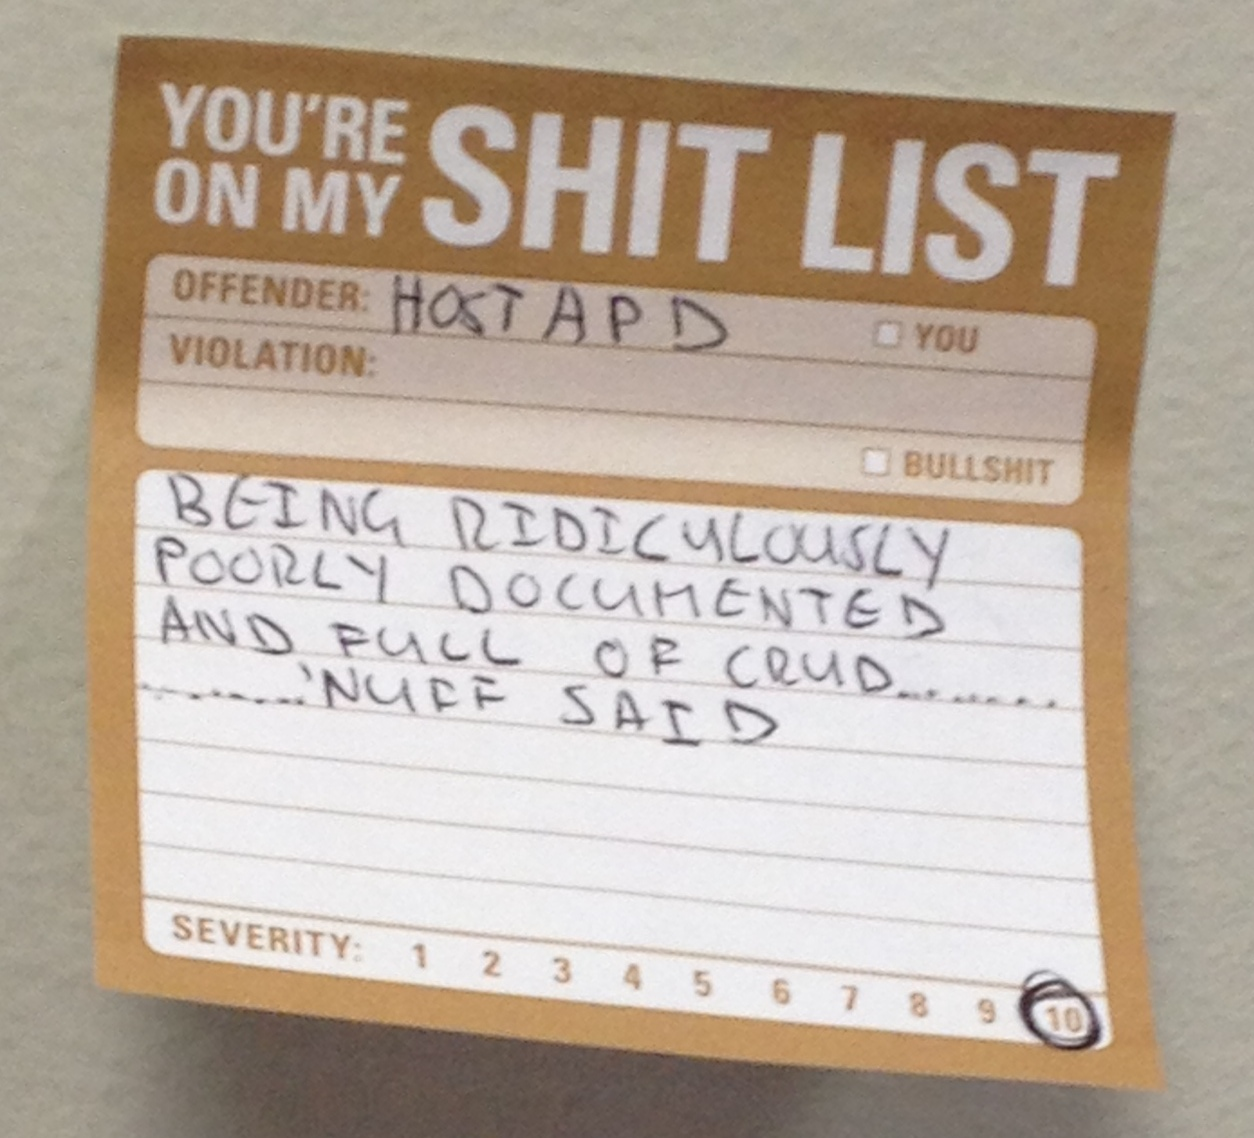 YOU'RE ON MY SHIT LIST
OFFENDER: HOSTAPD YOU
VIOLATION:
BULLSHIT
BEING RIDICULOUSLY
POORLY DOCUMENTED
AND FULL OF CRUD........
........'NUFF SAID
SEVERITY: 1 2 3 4 5 6 7 8 9 10